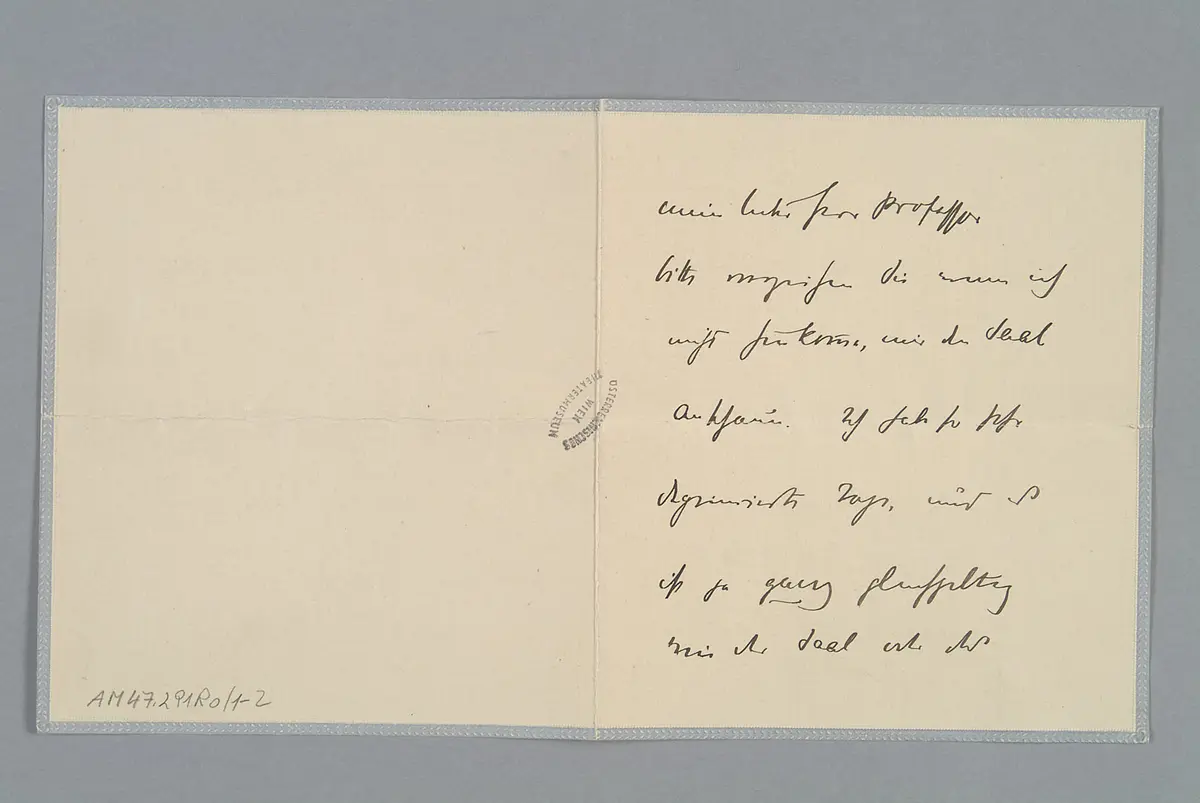 mein lieber Herr Professor
bitte verzeihen Sie wenn ich
nicht hinkom̄e, mir den Saal
anschaun. Ich habe so sehr
deprimierte Tage, und es
ist ja ganz gleichgiltig
wie der Saal oder das
ÖSTERREICHISCHES
WIEN
THEATERMUSEUM
AM47.291Ro/1-2